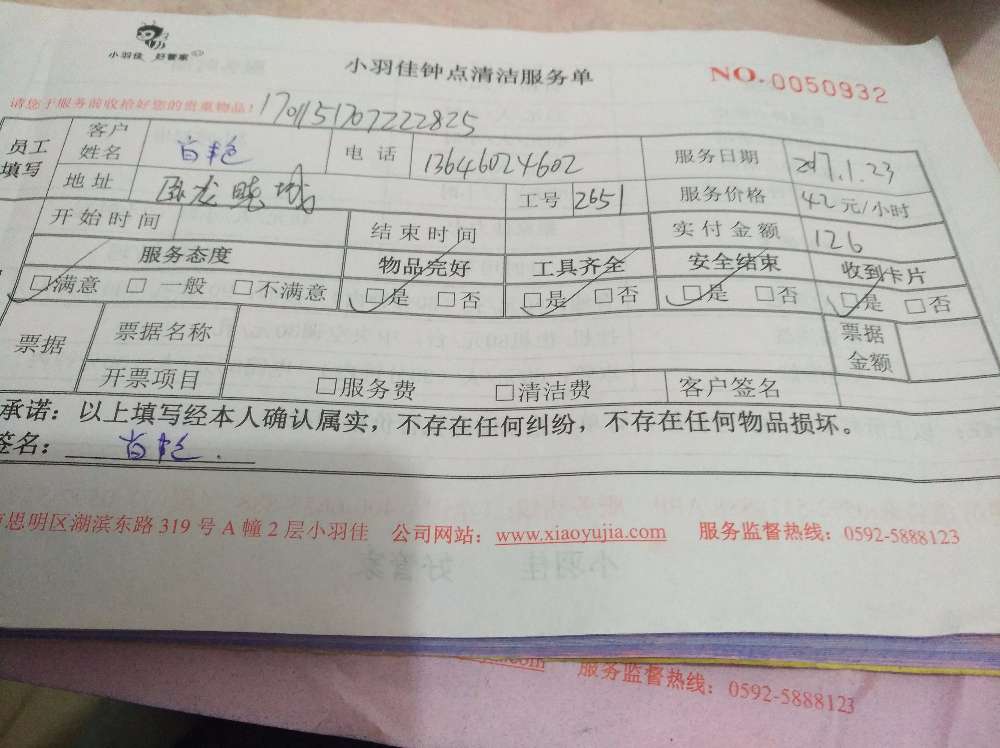 小羽佳 好管家
小羽佳钟点清洁服务单
NO.0050932
请您于服务前收拾好您的贵重物品！
170115170722825
员工填写
客户姓名
电话 13646024602
服务日期 2017.1.23
地址
工号 2651
服务价格 42元/小时
开始时间
结束时间
实付金额 126
服务态度 物品完好 工具齐全 安全结束 收到卡片
□满意 □一般 □不满意 □是 □否 □是 □否 □是 □否 □是 □否
票据
票据名称
票据金额
开票项目 □服务费 □清洁费 客户签名
承诺：以上填写经本人确认属实，不存在任何纠纷，不存在任何物品损坏。
签名：
思明区湖滨东路 319 号 A 幢 2 层小羽佳 公司网站：www.xiaoyujia.com 服务监督热线：0592-5888123
小羽佳 好管家
.com 服务监督热线：0592-5888123